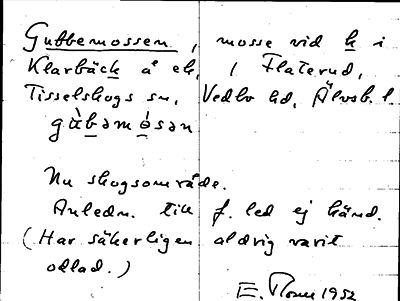 Gubbemossen, mosse vid h i
Klarbäck å ek, / Flaterud,
Tisselskogs sn, Vedbo hd, Älvsb. l.
gùbəmósən
Nu skogsområde.
Anledn. till f. led ej känd.
(Har säkerligen aldrig varit
odlad.)
E. 1952